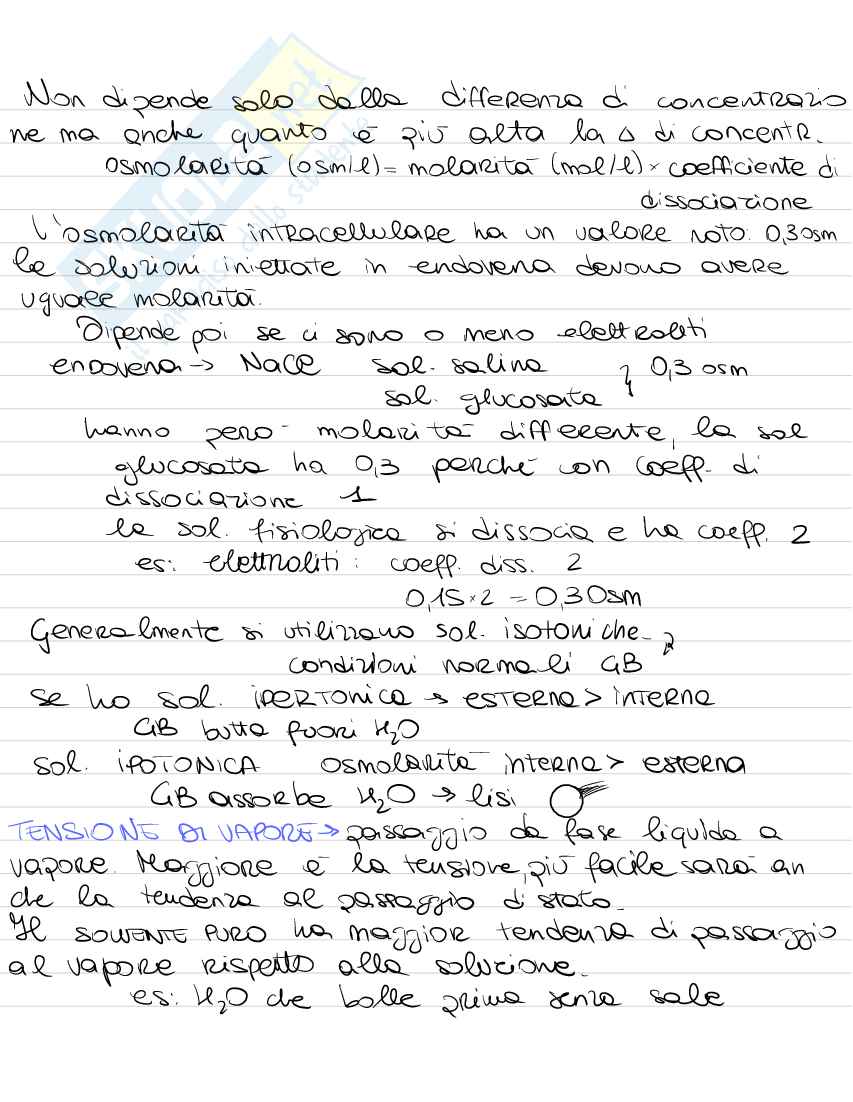 Non dipende solo dalla differenza di concentrazio
ne ma anche quanto è più alta la Δ di concentr.
osmolarità (osm/l) = molarità (mol/l) × coefficiente di
dissociazione
L'osmolarità intracellulare ha un valore noto: 0,3 osm
le soluzioni iniettate in endovena devono avere
uguale molarità.
Dipende poi se ci sono o meno elettroliti
endovena → NaCl sol. salina } 0,3 osm
sol. glucosata
hanno però molarità differente, la sol
glucosata ha 0,3 perché con coeff. di
dissociazione 1
la sol. fisiologica si dissocia e ha coeff. 2
es: elettroliti: coeff. diss. 2
0,15 × 2 = 0,3 Osm
Generalmente si utilizzano sol. isotoniche
condizioni normali GB
se ho sol. IPERTONICA → ESTERNA > INTERNA
GB butta fuori H₂O
sol. IPOTONICA osmolarità interna > esterna
GB assorbe H₂O → lisi
TENSIONE DI VAPORE → passaggio da fase liquida a
vapore. Maggiore è la tensione, più facile sarà an
che la tendenza al passaggio di stato.
Il SOLVENTE PURO ha maggior tendenza di passaggio
al vapore rispetto alla soluzione.
es: H₂O che bolle prima senza sale